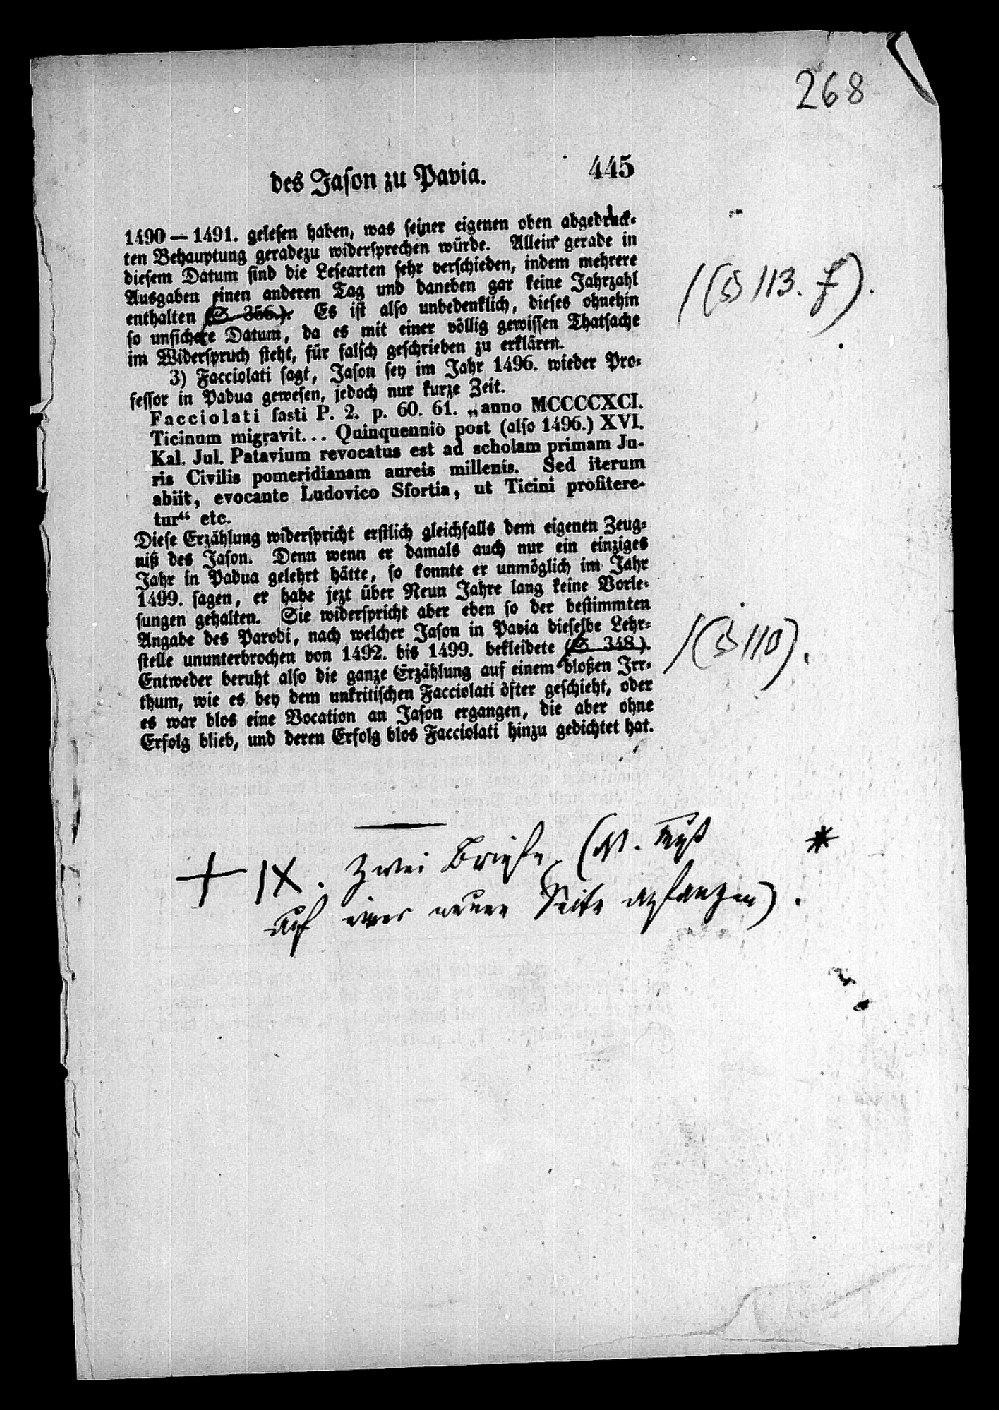 268
des Jason zu Pavia. 445
1490 — 1491. gelesen haben, was seiner eigenen oben abgedruck-
ten Behauptung geradezu widersprechen würde. Allein gerade in
diesem Datum sind die Lesearten sehr verschieden, indem mehrere
Ausgaben einen anderen Tag und daneben gar keine Jahrzahl
enthalten (S. 356.). Es ist also unbedenklich, dieses ohnehin
/(§ 113. f).
so unsichere Datum, da es mit einer völlig gewissen Thatsache
im Widerspruch steht, für falsch geschrieben zu erklären.
3) Facciolati sagt, Jason sey im Jahr 1496. wieder Pro-
fessor in Padua gewesen, jedoch nur kurze Zeit.
Facciolati fasti P. 2. p. 60. 61. „anno MCCCCXCI.
Ticinum migravit... Quinquennio post (also 1496.) XVI.
Kal. Jul. Patavium revocatus est ad scholam primam Ju-
ris Civilis pomeridianam aureis millenis. Sed iterum
abiit, evocante Ludovico Sfortia, ut Ticini profitere-
tur“ etc.
Diese Erzählung widerspricht erstlich gleichfalls dem eigenen Zeug-
niß des Jason. Denn wenn er damals auch nur ein einziges
Jahr in Padua gelehrt hätte, so konnte er unmöglich im Jahr
1499. sagen, er habe jezt über Neun Jahre lang keine Vorle-
sungen gehalten. Sie widerspricht aber eben so der bestimmten
Angabe des Parodi, nach welcher Jason in Pavia dieselbe Lehr-
stelle ununterbrochen von 1492. bis 1499. bekleidete (S. 348.).
/(§ 110).
Entweder beruht also die ganze Erzählung auf einem bloßen Irr-
thum, wie es bey dem unkritischen Facciolati öfter geschieht, oder
es war blos eine Vocation an Jason ergangen, die aber ohne
Erfolg blieb, und deren Erfolg blos Facciolati hinzu gedichtet hat.
+ IX. Zwei Briefe. (NB. muß *
auf einer neuen Seite anfangen).